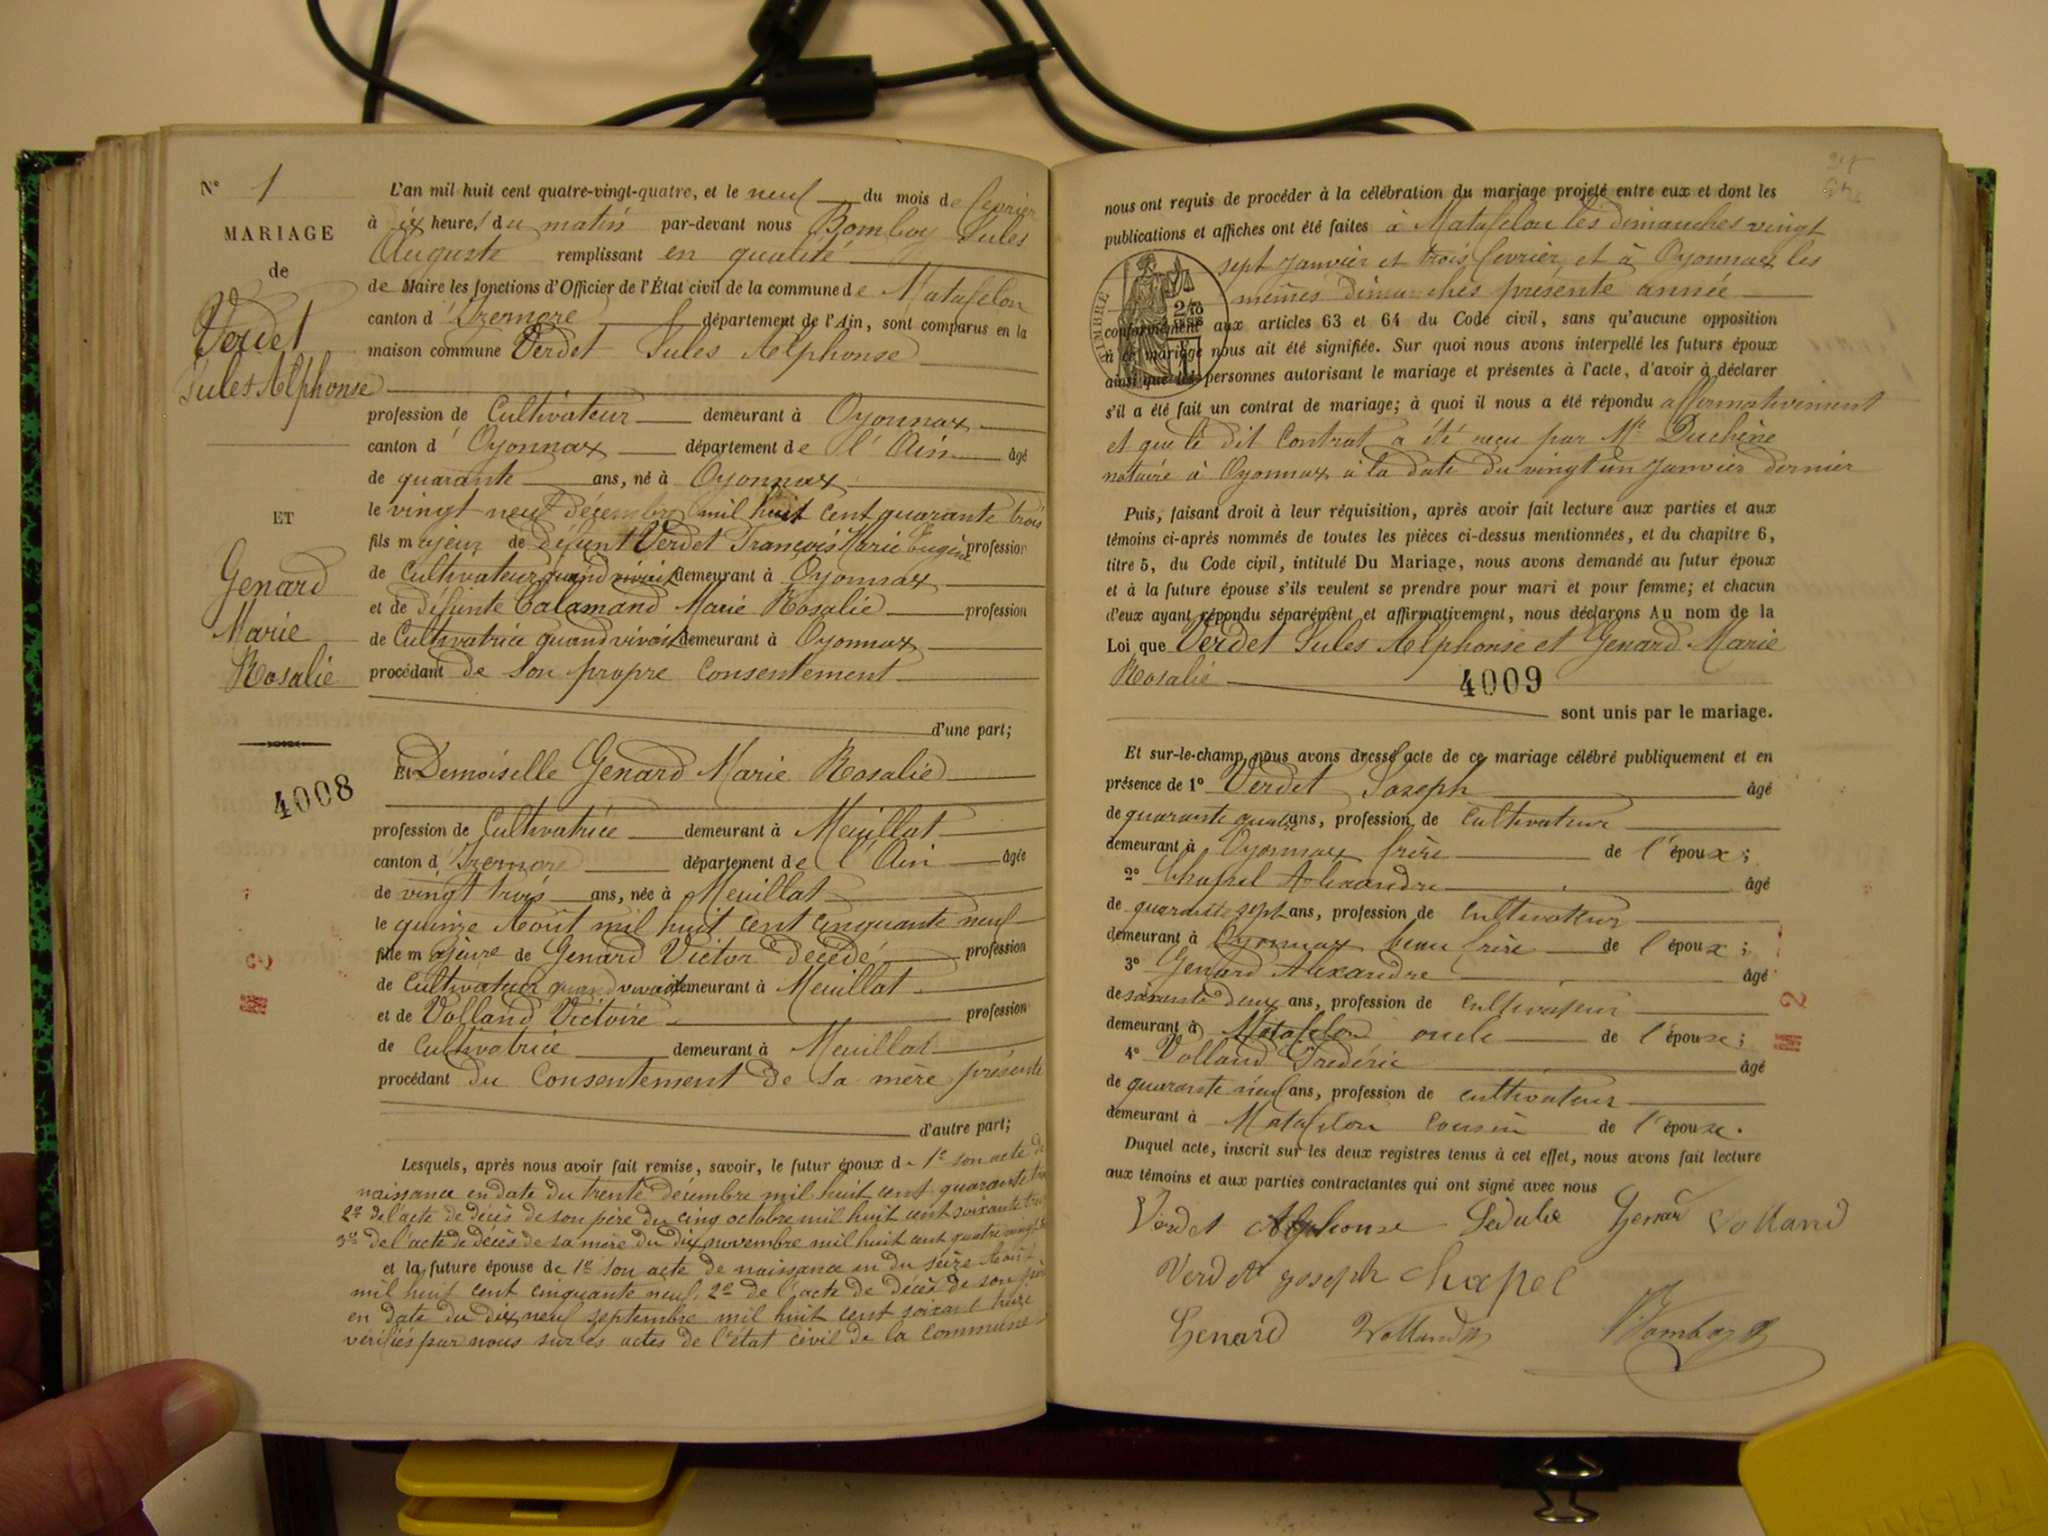 N° 1
MARIAGE
de
Verdet
Jules Alphonse
ET
Genard
Marie
Rosalie
4008
L'an mil huit cent quatre-vingt-quatre, et le neuf du mois de fevrier
à dix heures du matin par-devant nous Bomboy Jules
Auguste remplissant en qualité
de Maire les fonctions d'Officier de l'État civil de la commune de Matafelon
canton d'Izernore département de l'Ain, sont comparus en la
maison commune Verdet Jules Alphonse
profession de Cultivateur demeurant à Oyonnax
canton d'Oyonnax département de l'Ain âgé
de quarante ans, né à Oyonnax
le vingt neuf décembre mil huit cent quarante trois
fils majeur de défunt Verdet François Marie Eugène profession
de Cultivateur quand vivait demeurant à Oyonnax
et de défunte Calamand Marie Rosalie profession
de Cultivatrice quand vivait demeurant à Oyonnax
procédant de son propre consentement
d'une part;
Et Demoiselle Genard Marie Rosalie
profession de Cultivatrice demeurant à Meuillat
canton d'Izernore département de l'Ain âgée
de vingt trois ans, née à Meuillat
le quinze Août mil huit cent cinquante neuf
fille majeure de Genard Victor décédé profession
de Cultivateur quand vivait demeurant à Meuillat
et de Volland Victoire profession
de Cultivatrice demeurant à Meuillat
procédant du consentement de sa mère présente
d'autre part;
Lesquels, après nous avoir fait remise, savoir, le futur époux de 1° son acte de
naissance en date du trente décembre mil huit cent quarante
2° de l'acte de décès de son père du cinq octobre mil huit cent soixante
3° de l'acte de décès de sa mère du dix novembre mil huit cent quatre vingt
et la future épouse de 1° son acte de naissance en du seize Août
mil huit cent cinquante neuf, 2° de l'acte de décès de son père
en date du dix neuf septembre mil huit cent soixante treize
vérifiés par nous sur les actes de l'état civil de la commune
nous ont requis de procéder à la célébration du mariage projeté entre eux et dont les
publications et affiches ont été faites à Matafelon les dimanches vingt
sept janvier et trois fevrier et à Oyonnax les
mêmes dimanches présente année
TIMBRE
conformément aux articles 63 et 64 du Code civil, sans qu'aucune opposition
à ce mariage nous ait été signifiée. Sur quoi nous avons interpellé les futurs époux
ainsi que les personnes autorisant le mariage et présentes à l'acte, d'avoir à déclarer
s'il a été fait un contrat de mariage; à quoi il nous a été répondu affirmativement
et que le dit Contrat a été reçu par Me Duchêne
notaire à Oyonnax à la date du vingt un janvier dernier
Puis, faisant droit à leur réquisition, après avoir fait lecture aux parties et aux
témoins ci-après nommés de toutes les pièces ci-dessus mentionnées, et du chapitre 6,
titre 5, du Code cipil, intitulé Du Mariage, nous avons demandé au futur époux
et à la future épouse s'ils veulent se prendre pour mari et pour femme; et chacun
d'eux ayant répondu séparément et affirmativement, nous déclarons Au nom de la
Loi que Verdet Jules Alphonse et Genard Marie
Rosalie
4009
sont unis par le mariage.
Et sur-le-champ nous avons dressé acte de ce mariage célébré publiquement et en
présence de 1° Verdet Joseph âgé
de quarante quatre ans, profession de cultivateur
demeurant à Oyonnax frère de l'époux;
2° Chapel Alexandre âgé
de quarante sept ans, profession de cultivateur
demeurant à Oyonnax beau frère de l'époux;
3° Genard Alexandre âgé
de soixante deux ans, profession de cultivateur
demeurant à Matafelon oncle de l'épouse;
4° Volland Frédéric âgé
de quarante neuf ans, profession de cultivateur
demeurant à Matafelon cousin de l'épouse.
Duquel acte, inscrit sur les deux registres tenus à cet effet, nous avons fait lecture
aux témoins et aux parties contractantes qui ont signé avec nous
Verdet Alphonse Genard Volland
Verdet joseph Chapel
Genard Volland Bomboy